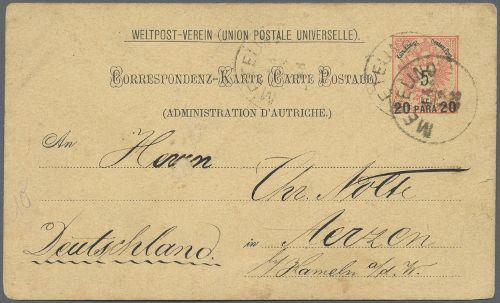 WELTPOST-VEREIN (UNION POSTALE UNIVERSELLE).
CORRESPONDENZ-KARTE (CARTE POSTALE)
(ADMINISTRATION D'AUTRICHE).
5
20 PARA 20
An Herrn
Chr. Nolte
in Aerzen
b/Hameln a/d. W.
Deutschland.
10